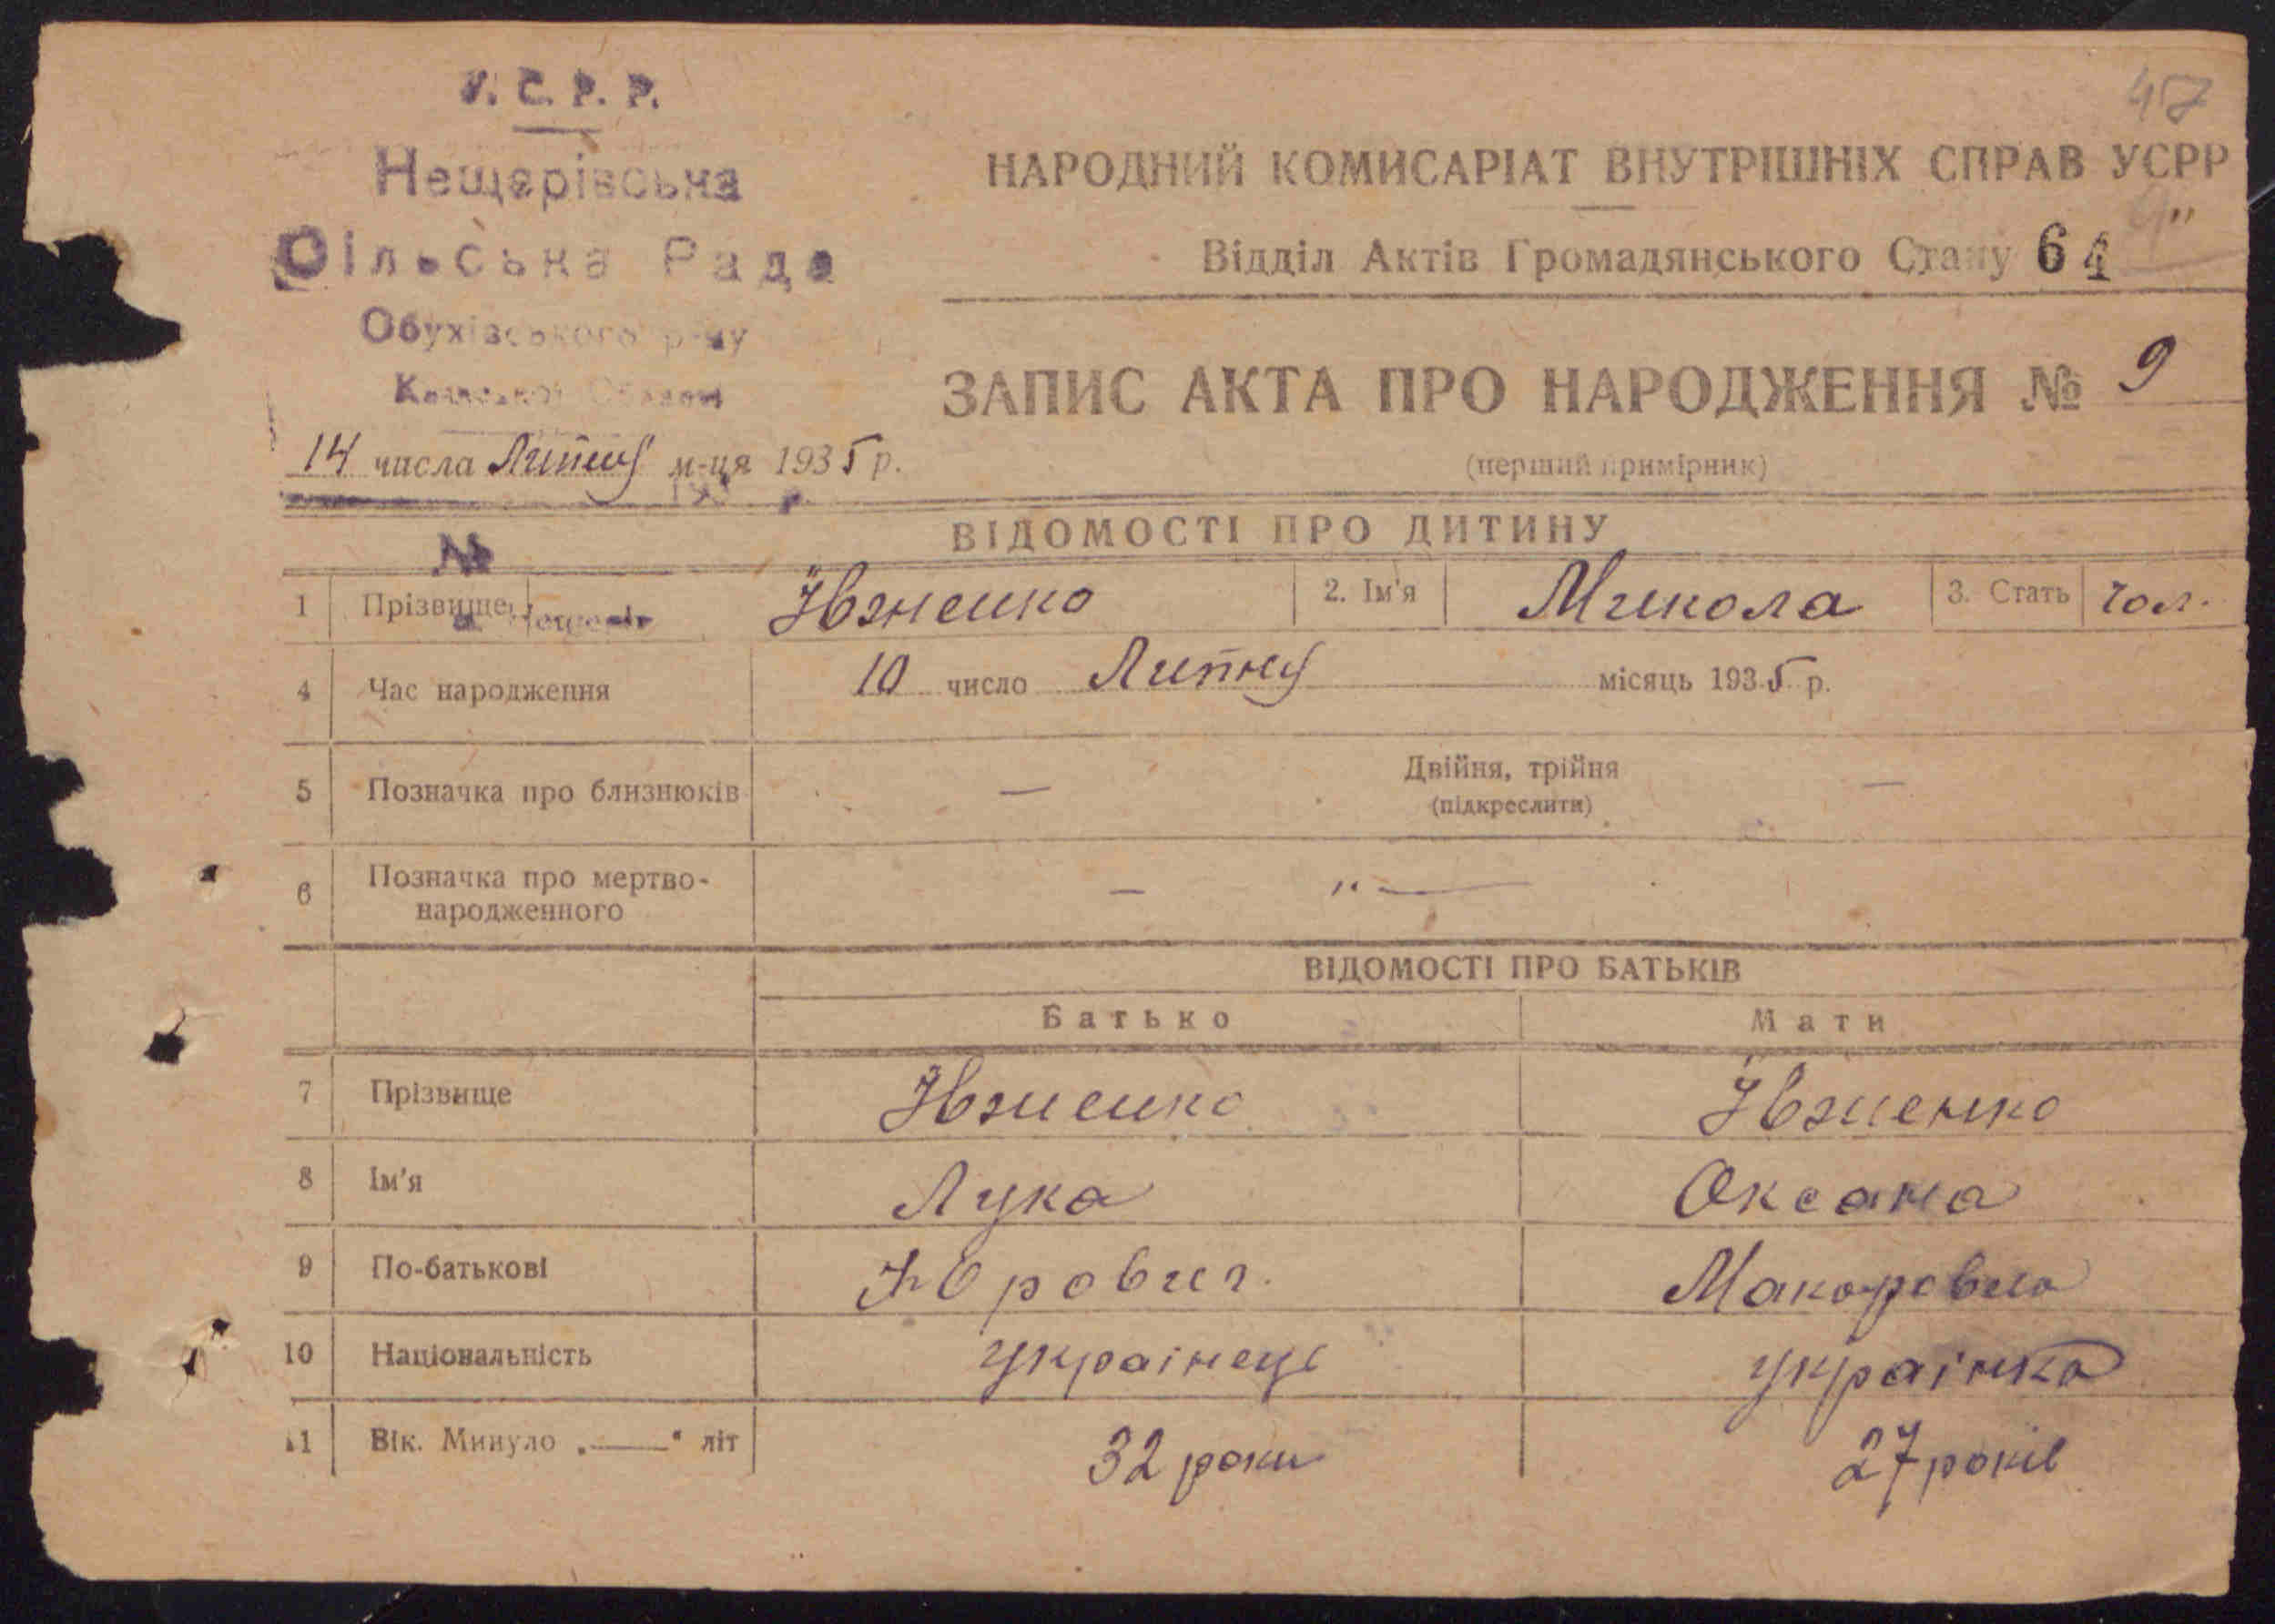 У. С. Р. Р.
Нещерівська
Сільська Рада
Обухівського р-ну
Київської Області
14 числа Липня м-ця 1935 р.
193 р.
№
47
НАРОДНИЙ КОМИСАРІАТ ВНУТРІШНІХ СПРАВ УСРР
Відділ Актів Громадянського Стану 64
ЗАПИС АКТА ПРО НАРОДЖЕННЯ № 9
(перший примірник)
ВІДОМОСТІ ПРО ДИТИНУ
1 Прізвище Ївженко 2. Ім'я Микола 3. Стать чол.
4 Час народження 10 число Липня місяць 1935 р.
5 Позначка про близнюків — Двійня, трійня —
(підкреслити)
6 Позначка про мертво-
народженного — " —
ВІДОМОСТІ ПРО БАТЬКІВ
Батько Мати
7 Прізвище Ївженко Ївженко
8 Ім'я Лука Оксана
9 По-батькові Юрович Макаровна
10 Національність українець українка
11 Вік. Минуло „ — “ літ 32 роки 27 років